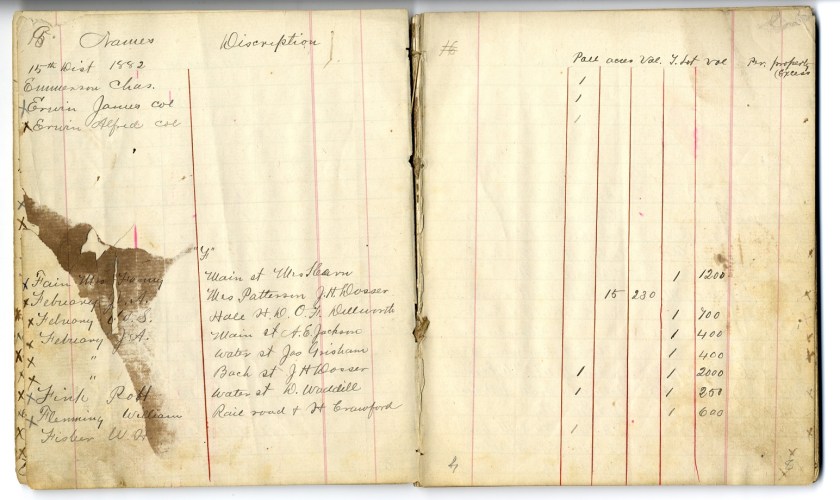 Names Discription
15th Dist 1882
Emmerson Chas.
x Erwin James col
x Erwin Alfred col
F
x Fain Mrs Main st Mrs
x February Mrs Patterson J. H. Dosser
x February W. S. Hale H. D. O. F. Dillworth
February J. A. Main st A. E. Jackson
" Water st Jas Grisham
" Back st J H Dosser
x Fink Robt Water st D. Waddill
x Flemming William Rail road & H Crawford
Fisher W. H.
Poll acres Val. T. Lot val Per. property (Excess
1
1
1
1 1200
15 230
1 700
1 400
1 400
1 1 2000
1 1 250
1 600
1